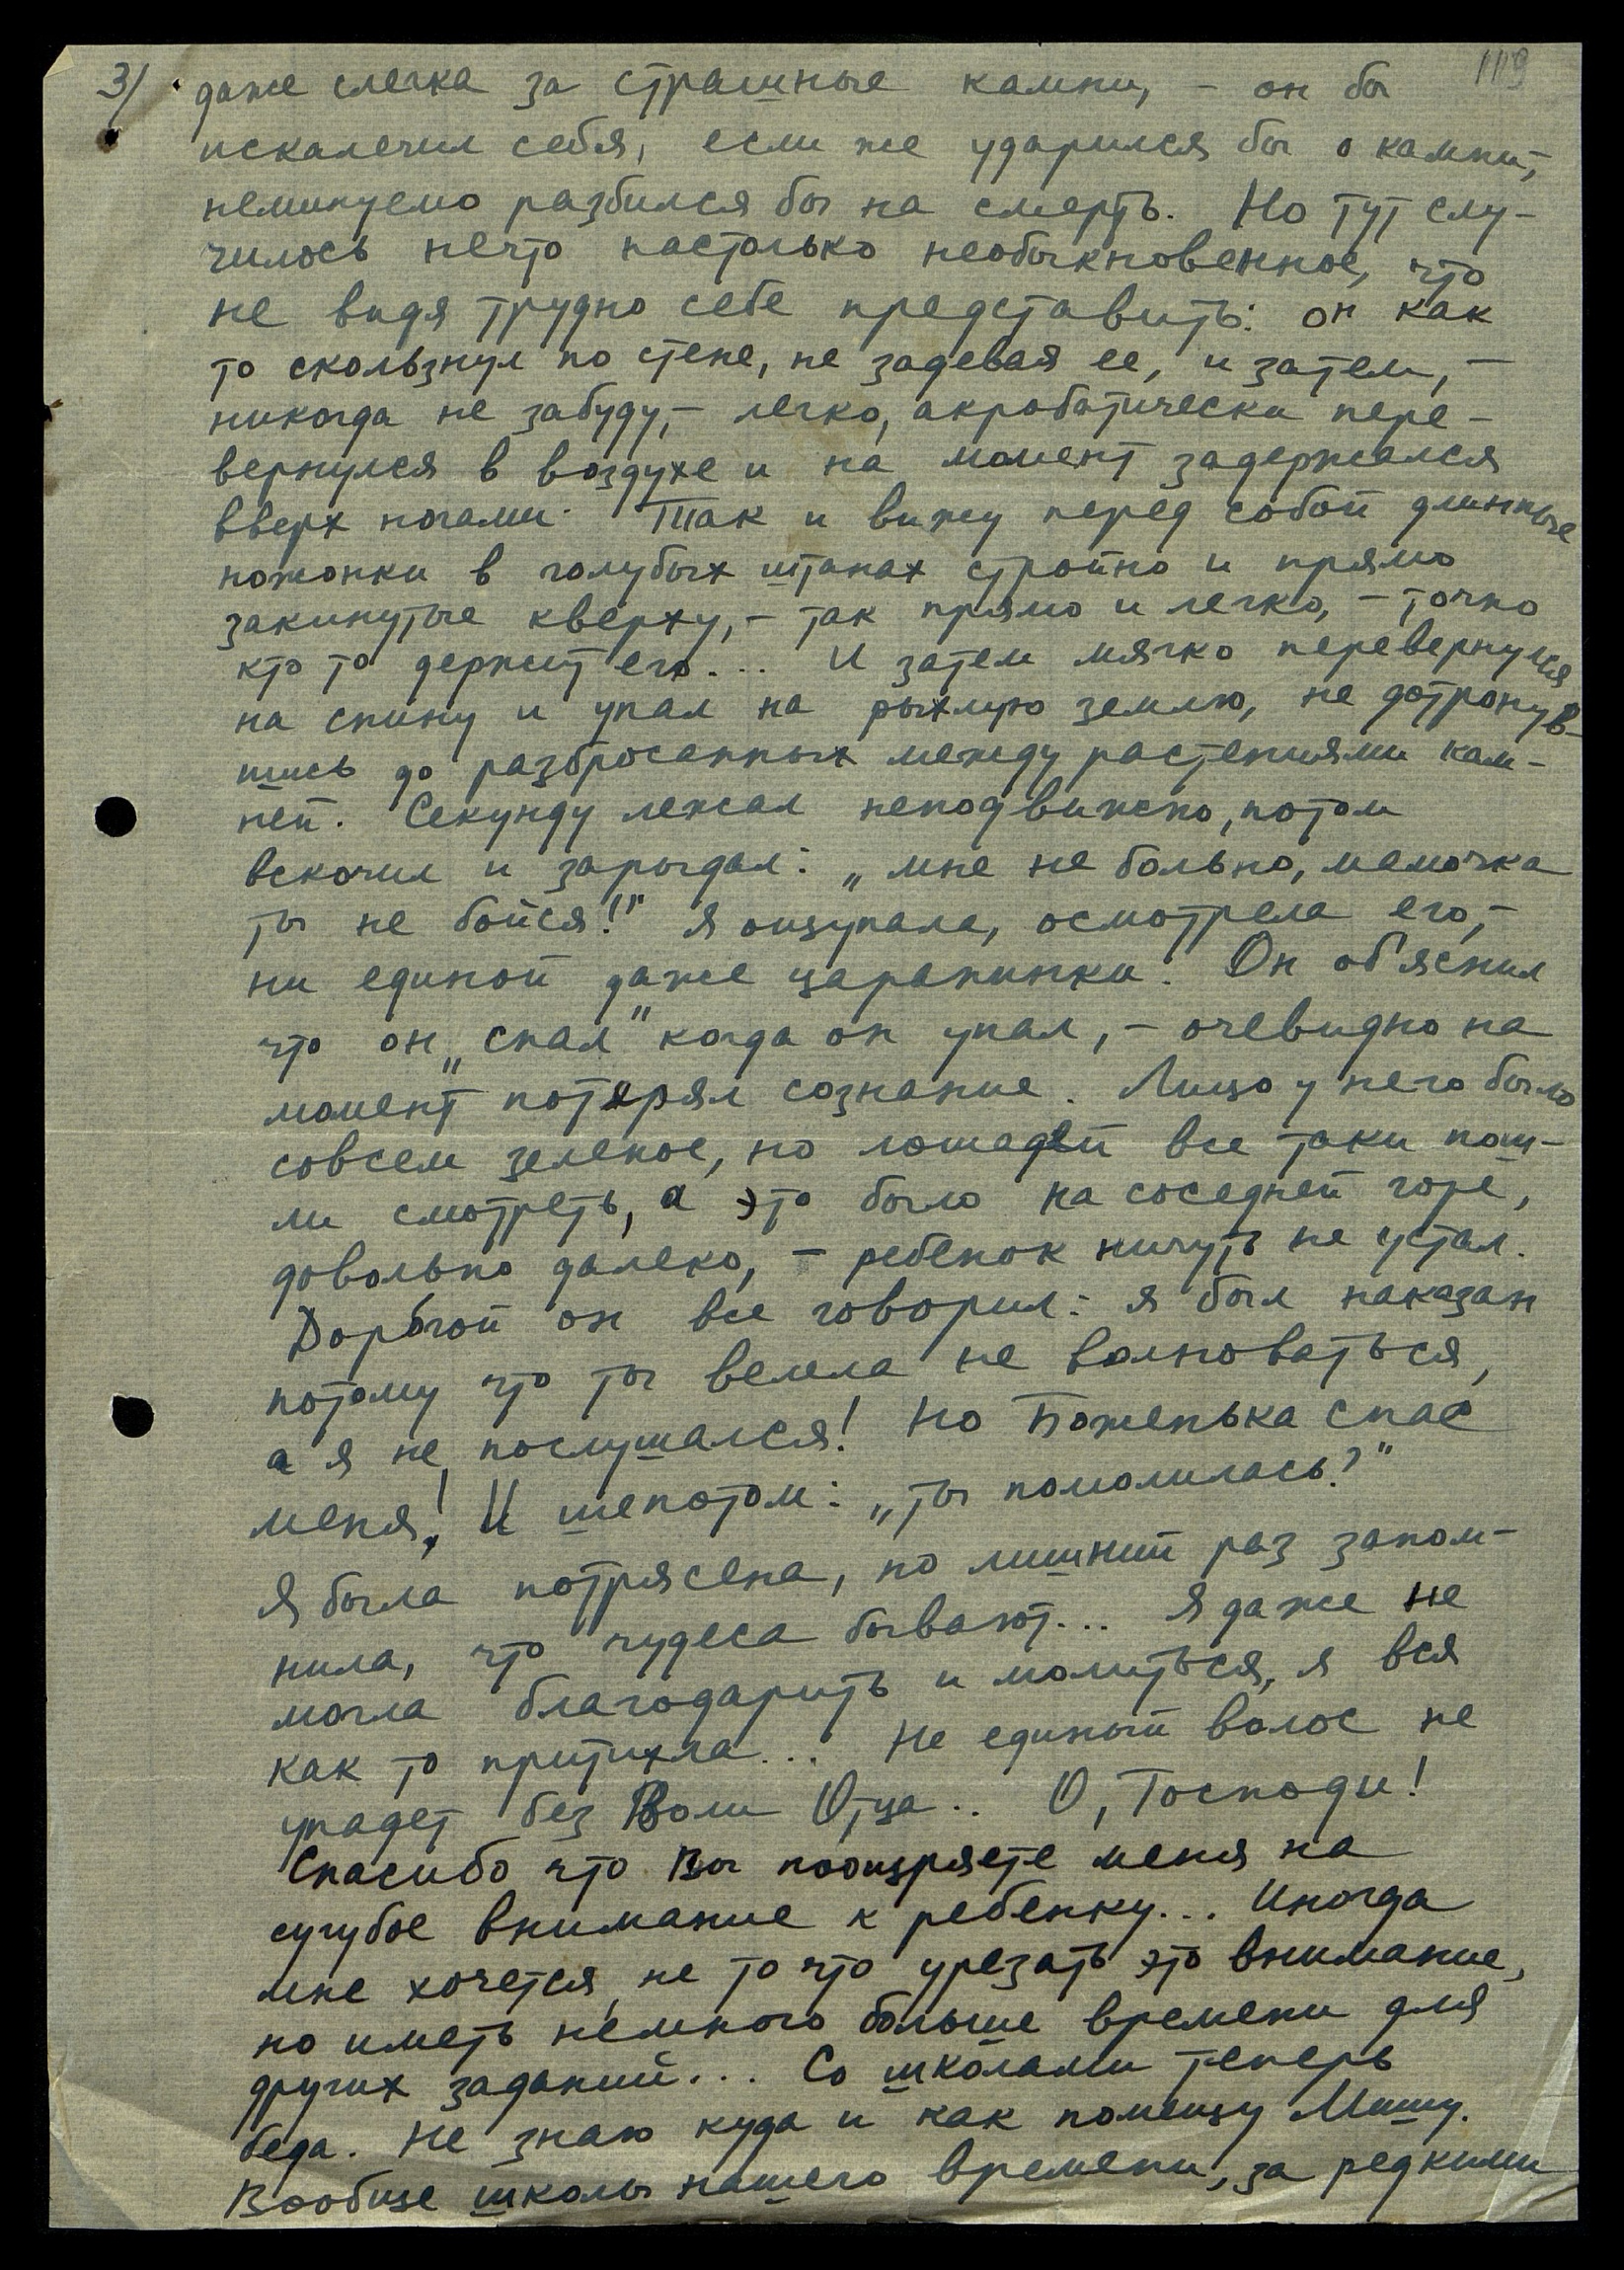 3/ даже слегка за страшные камни, – он бы 119
искалечил себя, если же ударился бы о камни,
неминуемо разбился бы на смерть. Но тут слу-
чилось нечто настолько необыкновенное, что
не видя трудно себе представить: он как
то скользнул по стене, не задевая ее, и затем, –
никогда не забуду, – легко, акробатически пере-
вернулся в воздухе и на момент задержался
вверх ногами. Так и вижу перед собой длинные
ножонки в голубых штанах стройно и прямо
закинутые кверху, – так прямо и легко, – точно
кто то держит его... И затем мягко перевернулся
на спину и упал на рыхлую землю, не дотронув-
шись до разбросанных между растениями кам-
ней. Секунду лежал неподвижно, потом
вскочил и зарыдал: „мне не больно, мамочка
ты не бойся!" Я ощупала, осмотрела его, –
ни единой даже царапинки. Он об'яснил
что он „спал" когда он упал, – очевидно на
момент потерял сознание. Лицо у него было
совсем зеленое, но лошадей все таки пош-
ли смотреть, а это было на соседней горе,
довольно далеко, – ребенок ничуть не устал.
Дорогой он все говорил: я был наказан
потому что ты велела не волноваться,
а я не послушался! Но Боженька спас
меня! И шепотом: „ты помолилась?"
Я была потрясена, но лишний раз запом-
нила, что чудеса бывают... Я даже не
могла благодарить и молиться, я вся
как то притихла... Не единый волос не
упадет без Воли Отца.. О, Господи!
Спасибо что Вы поощряете меня на
сугубое внимание к ребенку... Иногда
мне хочется, не то что урезать это внимание,
но иметь немного больше времени для
других заданий... Со школами теперь
беда. Не знаю куда и как помещу Мишу.
Вообще школы нашего времени, за редкими